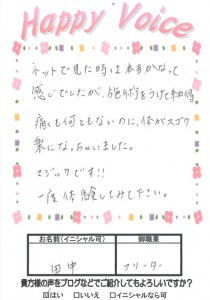 Happy Voice
ネットで見た時は本当かなって
感じでしたが、施術をうけて納得
痛くも何ともないのに、体がスゴク
楽になっちゃいました。
マジックです!!
一度体験してみて下さい。
お名前(イニシャル可) 御職業
田中 フリーター
貴方様の声をブログなどでご紹介してもよろしいですか？
☑はい □いいえ □イニシャルなら可